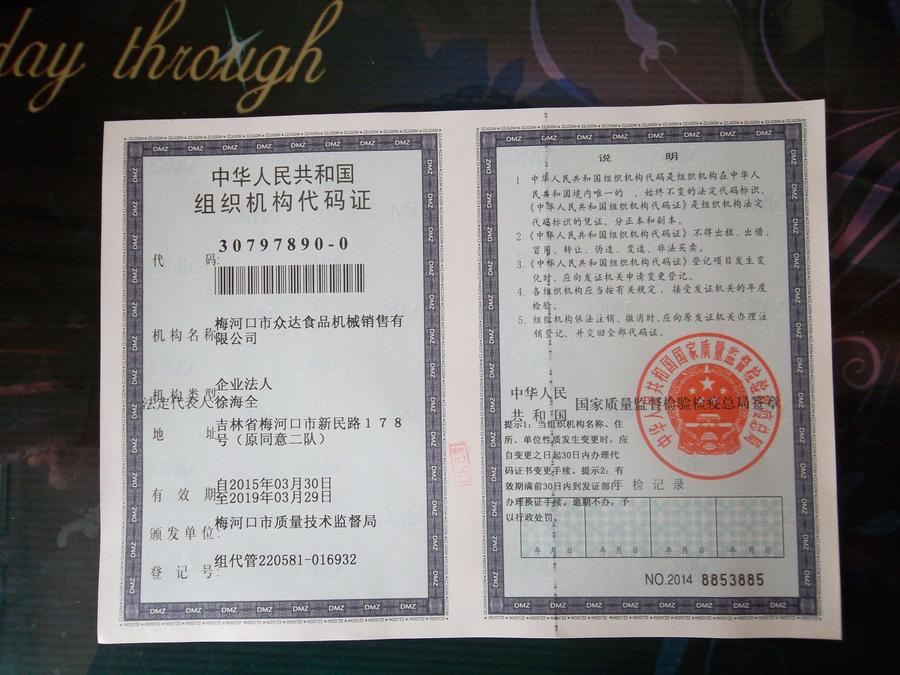 day through
中华人民共和国
组织机构代码证
代 码: 30797890-0
机构名称: 梅河口市众达食品机械销售有
限公司
机构类型: 企业法人
法定代表人 徐海全
地 址: 吉林省梅河口市新民路178
号（原同意二队）
有 效 期: 自2015年03月30日
至2019年03月29日
颁发单位: 梅河口市质量技术监督局
登 记 号: 组代管220581-016932
说 明
1. 中华人民共和国组织机构代码是组织机构在中华人
民共和国境内唯一的 、始终不变的法定代码标识，
《中华人民共和国组织机构代码证》是组织机构法定
代码标识的凭证，分正本和副本。
2. 《中华人民共和国组织机构代码证》不得出租、出借、
冒用、转让、伪造、变造、非法买卖。
3. 《中华人民共和国组织机构代码证》登记项目发生变
化时，应向发证机关申请变更登记。
4. 各组织机构应当按有关规定 ，接受发证机关的年度
检验。
5. 组织机构依法注销、撤消时，应向原发证机关办理注
销登记，并交回全部代码证。
中华人民
共 和 国 国家质量监督检验检疫总局签章
中华人民共和国国家质量监督检验检疫总局
提示1：当组织机构名称、住
所、单位性质发生变更时，应
自变更之日起30日内办理代
码证书变更手续。提示2：有
效期满前30日内到发证部
办理换证手续。逾期不办，予
以行政处罚。
年 检 记 录
年 月 日 年 月 日 年 月 日 年 月 日
NO.2014 8853885